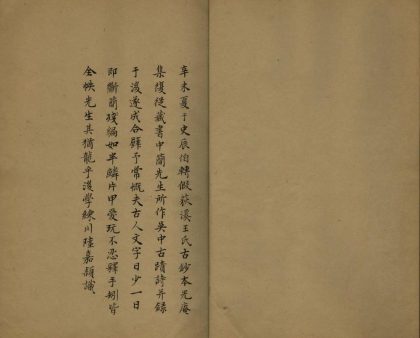 辛未夏于史辰伯轉假荻溪王氏古鈔本光庵
集復從藏書中簡先生所作吳中古蹟詩并錄
于後遂成合璧予常慨夫古人文字日少一日
即斷簡殘編如半鱗片甲愛玩不忍釋手矧皆
全帙先生其猶龍乎後學練川陸嘉穎識